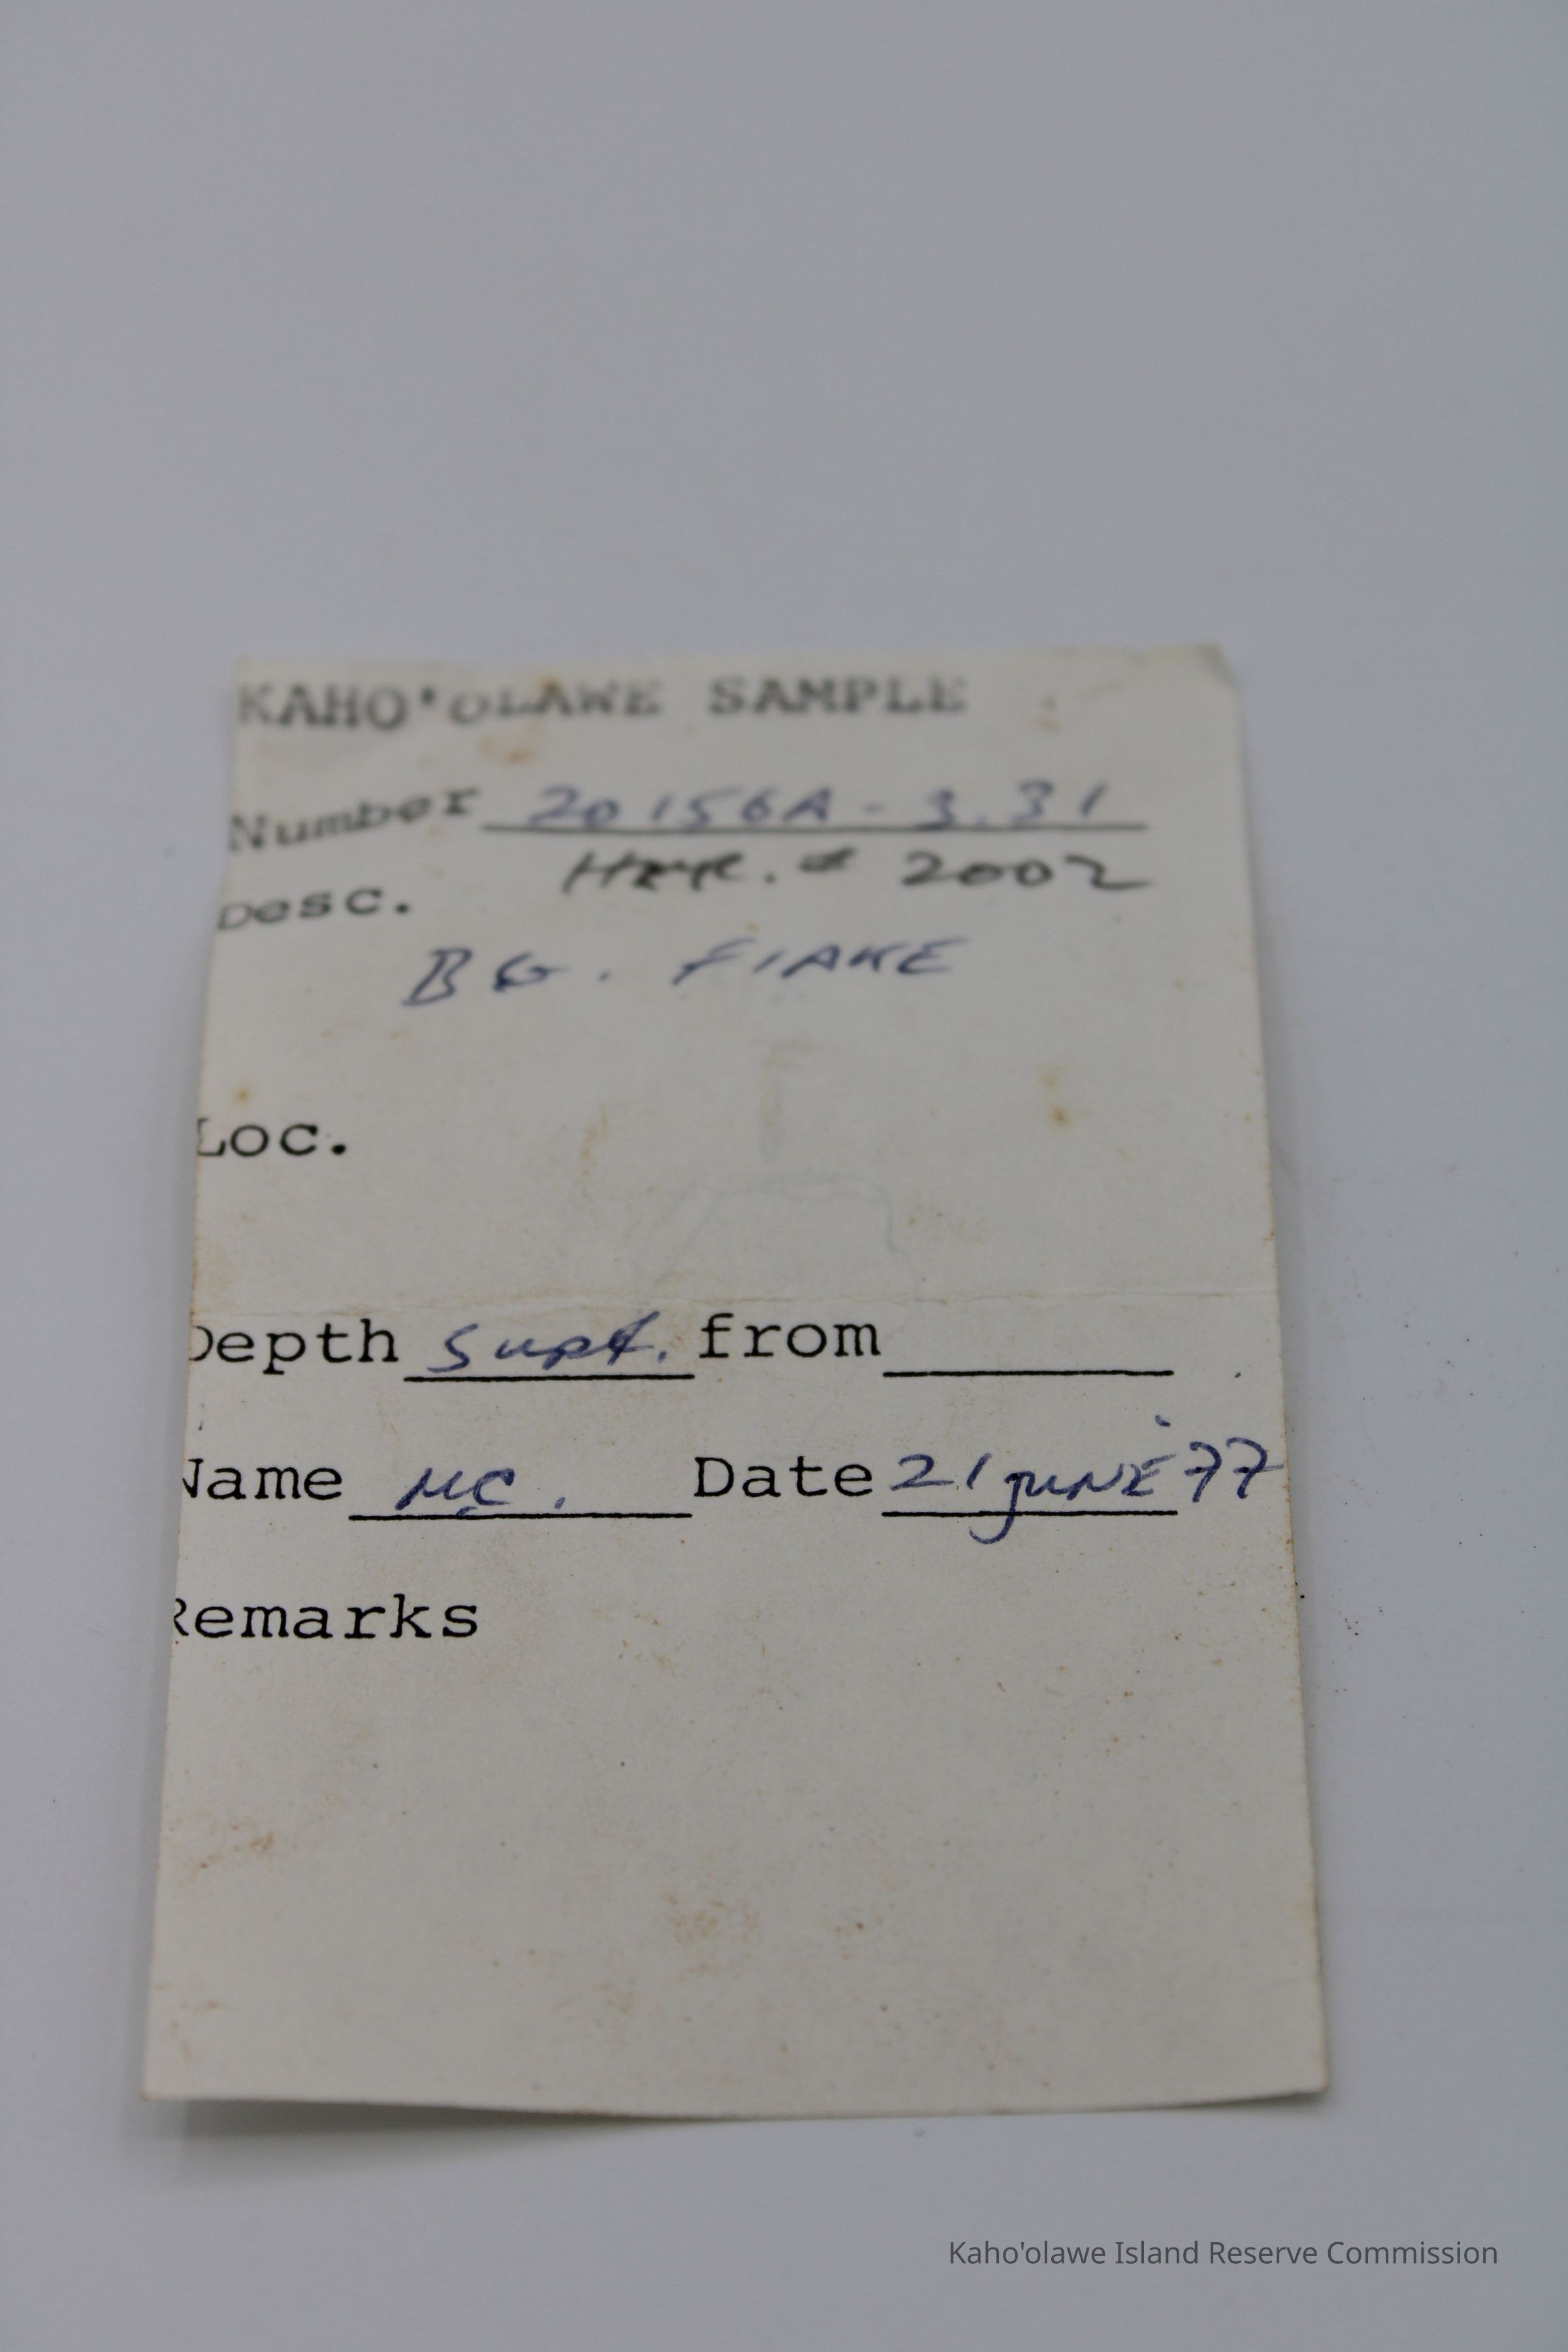 KAHO'OLAWE SAMPLE
Number 20156A - 3.31
Desc. # 2002
BG. FLAKE
Loc.
Depth Surf. from
Name MC. Date 21 JUNE 77
Remarks
Kaho'olawe Island Reserve Commission